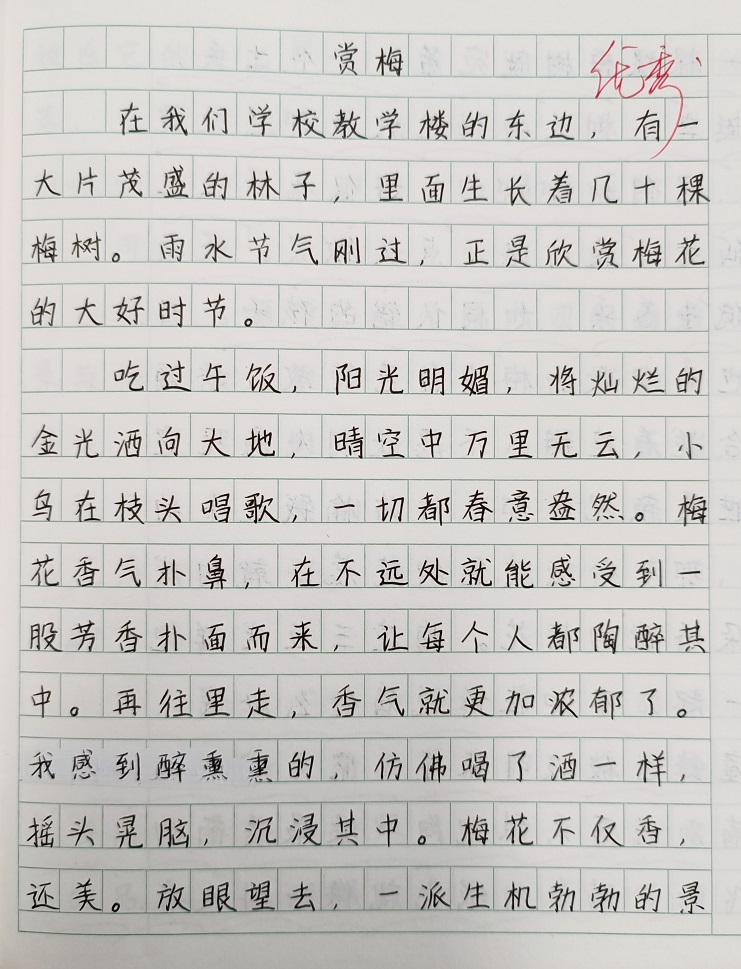 赏梅
优秀
在我们学校教学楼的东边，有一
大片茂盛的林子，里面生长着几十棵
梅树。雨水节气刚过，正是欣赏梅花
的大好时节。
吃过午饭，阳光明媚，将灿烂的
金光洒向大地，晴空中万里无云，小
鸟在枝头唱歌，一切都春意盎然。梅
花香气扑鼻，在不远处就能感受到一
股芳香扑面而来，让每个人都陶醉其
中。再往里走，香气就更加浓郁了。
我感到醉熏熏的，仿佛喝了酒一样，
摇头晃脑，沉浸其中。梅花不仅香，
还美。放眼望去，一派生机勃勃的景